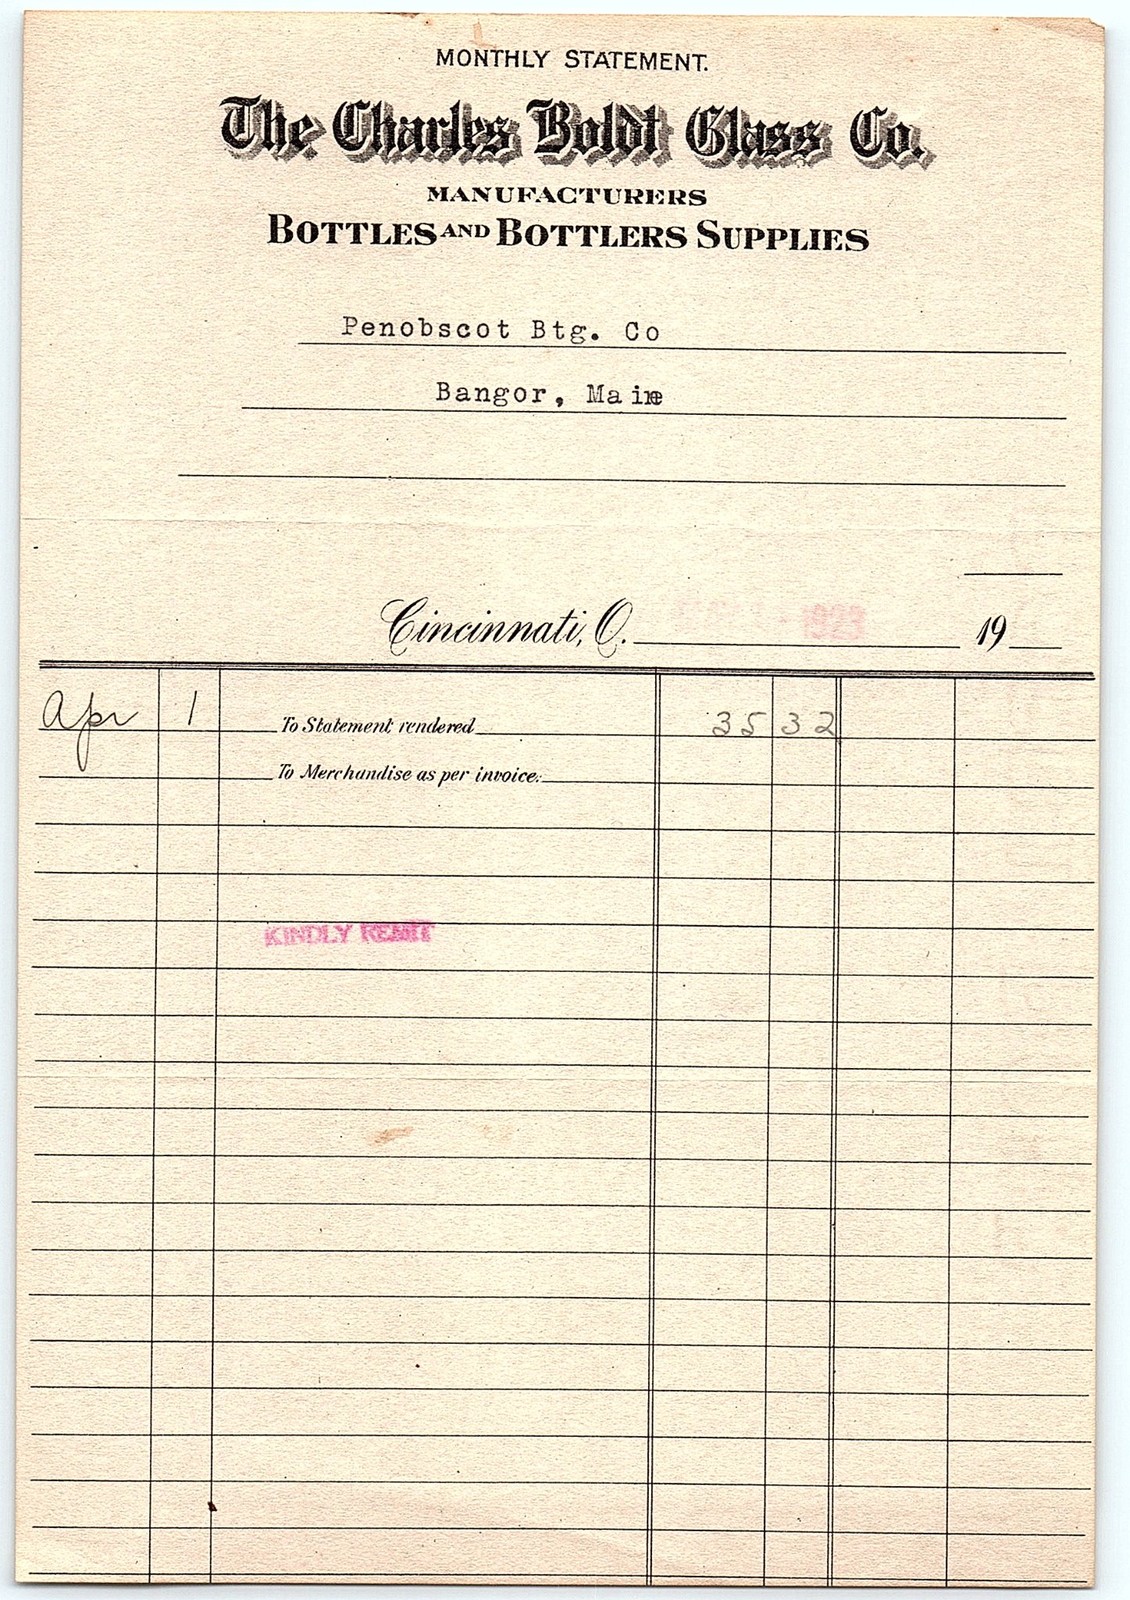 MONTHLY STATEMENT.
The Charles Boldt Glass Co.
MANUFACTURERS
BOTTLES AND BOTTLERS SUPPLIES
Penobscot Btg. Co
Bangor, Maine
Cincinnati, O. 1923 19
Apr 1 To Statement rendered 35 32
To Merchandise as per invoice.
KINDLY REMIT